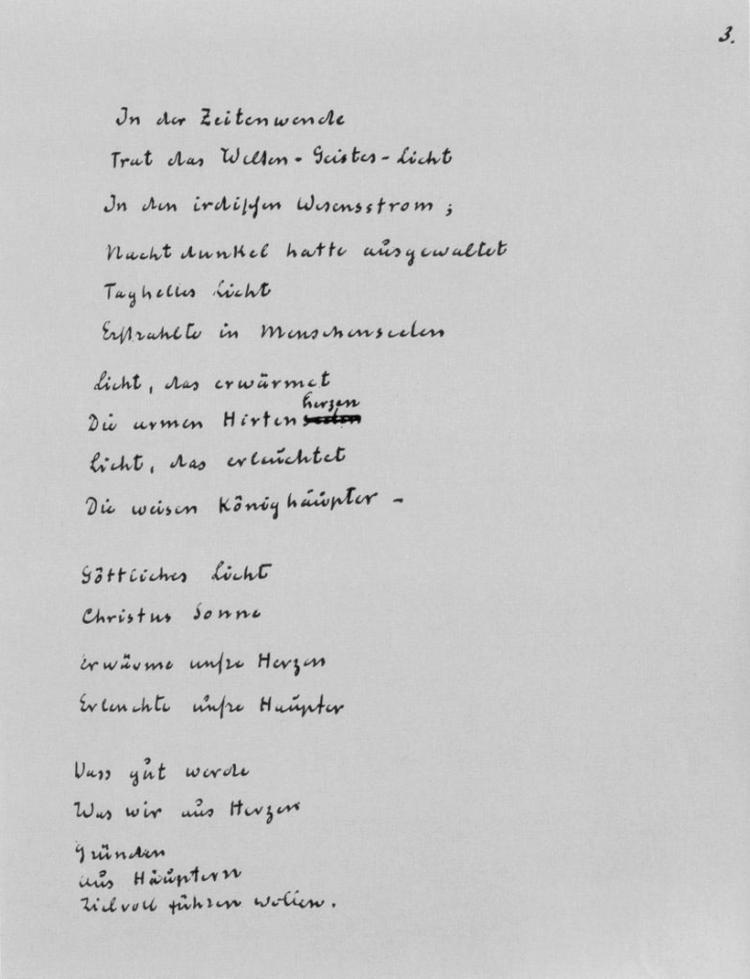 3.
In der Zeitenwende
Trat das Welten-Geistes-Licht
In den irdischen Wesensstrom;
Nachtdunkel hatte ausgewaltet
Taghelles Licht
Erstrahlte in Menschenseelen
Licht, das erwärmet
herzen
Die armen Hirten
Licht, das erleuchtet
Die weisen Könighäupter –
Göttliches Licht
Christus Sonne
Erwärme unsre Herzen
Erleuchte unsre Häupter
Dass gut werde
Was wir aus Herzen
Gründen
aus Häuptern
Zielvoll führen wollen.